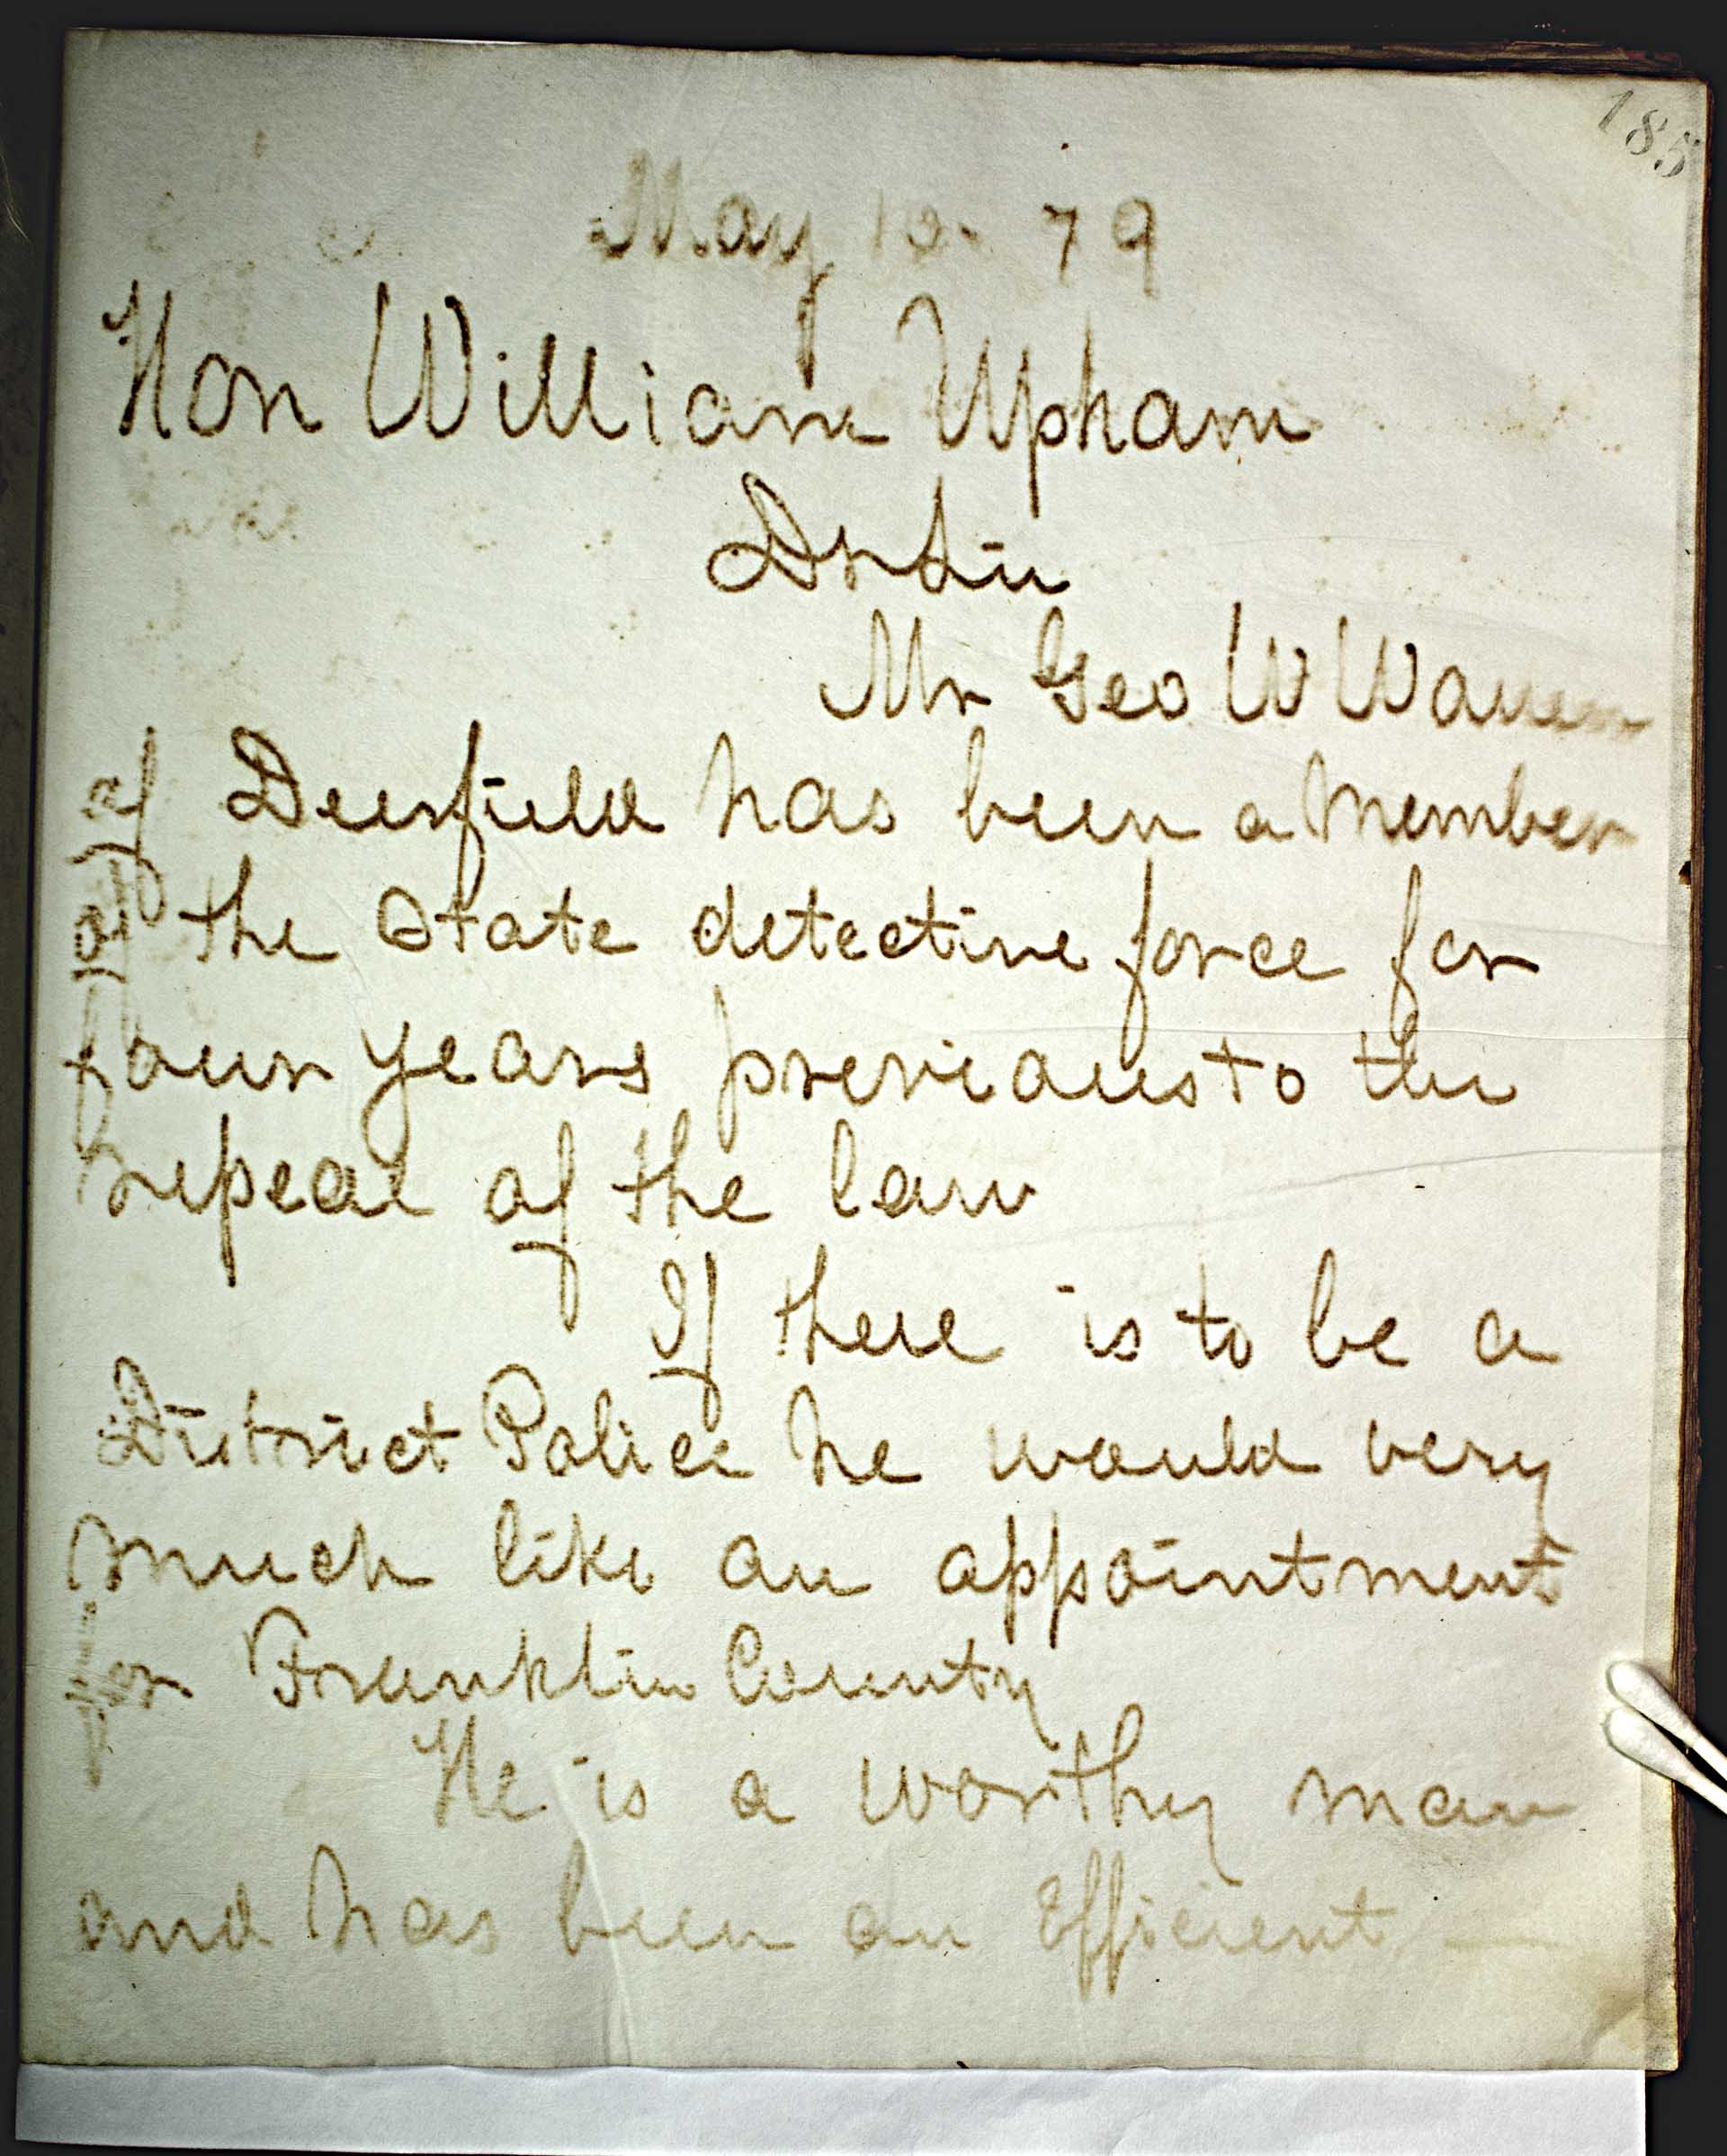 185
May 10. 79
Hon William Upham
Dr Sir
Mr Geo W Warren
of Deerfield has been a member
of the State detective force for
four years previous to the
repeal of the law
If there is to be a
District Police he would very
much like an appointment
for Franklin County
He is a worthy man
and has been an Efficient